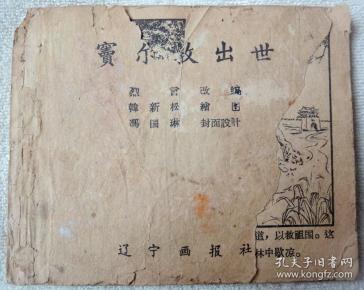 竇尔敦出世
烈言改編
韓新松繪图
馮国琳封面設計
道，以救祖国。这
林中歇涼。
辽宁画报社
孔夫子旧书网